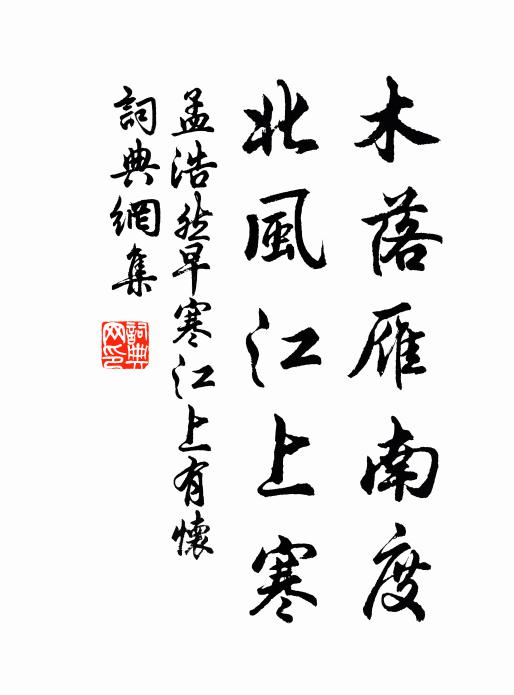 木落雁南度
北風江上寒
孟浩然早寒江上有懷
詞典網集
詞典網印